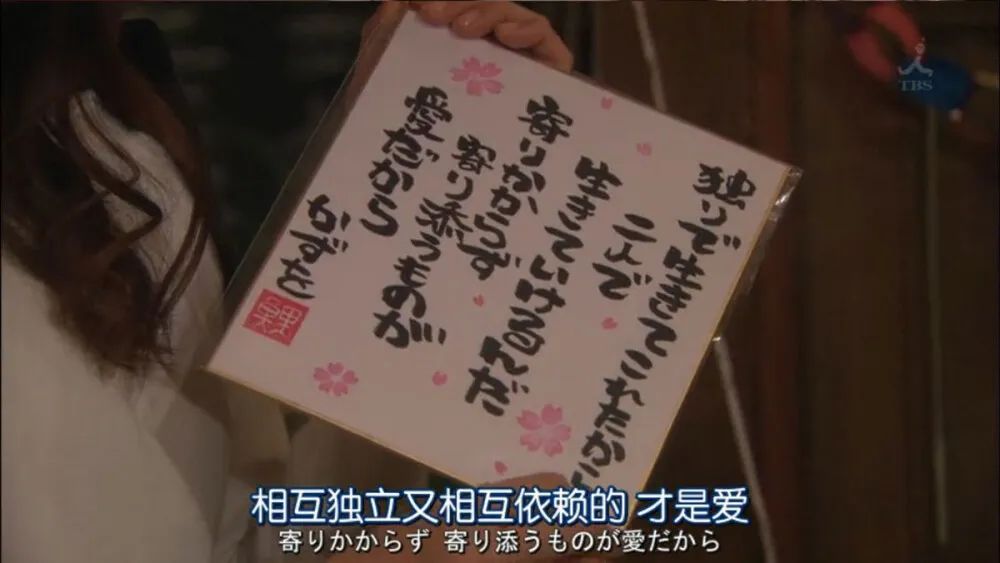 TBS
独りで生きてこれたから
二人で
生きていけるんだ
寄りかからず
寄り添うものが
愛だから
かずを
相互独立又相互依赖的 才是爱
寄りかからず 寄り添うものが愛だから